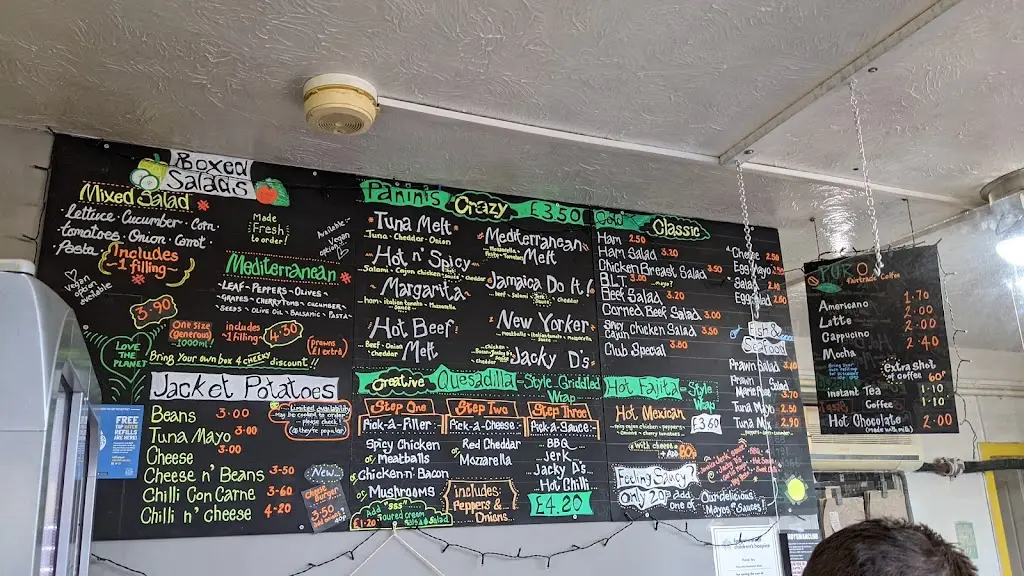 Boxed
Salads
Mixed Salad
Lettuce · Cucumber · Corn
tomatoes · Onion · Carrot
Pasta
Includes
~1 filling~
Vegan
option
available
3.90
Made
Fresh
to order!
Available
as Vegan
option
Mediterranean
LEAF - PEPPERS - OLIVES -
GRAPES - CHERRYTOMS - CUCUMBER
SEEDS - OLIVE OIL - BALSAMIC - PASTA
LOVE
THE
PLANET
One size
(generous)
1000ml
includes
~1 filling~
4.30
PRAWNS
£1 extra
Bring your own box 4 cheeky discount!!
Jacket Potatoes
Beans 3.00
Tuna Mayo 3.00
Cheese 3.00
Cheese n' Beans 3-50
Chilli Con Carne 3-60
Chilli n' cheese 4-20
Limited availability
may be content to order
please check
(they're popular)
New
Cheese
Burger
3.50
FREE
TAP WATER
REFILLS
ARE HERE!
Paninis Crazy £3.50
Tuna Melt
Tuna - Cheddar - Onion
Hot n' Spicy
Salami - Cajun chicken
Cheddar
Margarita
ham - italian tomato sauce - Mozzarella
Hot Beef
Melt
Beef - Onion
- Cheddar
Mediterranean
Melt
Jamaica Do it!
beef - Salami - Jerk Sauce
- Cheddar
New Yorker
Meatballs - italian sauce - Mozzarella
Jacky D's
Creative Quesadilla - Style Griddled
Wrap
Step One Step Two Step Three
Pick-a-Filler Pick-a-Cheese Pick-a-Sauce
Spicy Chicken
or Meatballs
or Chicken n' Bacon
or Mushrooms
Add "sss"
Soured cream
Salsa & Salad
£1-20
Red Cheddar
or Mozzarella
includes:
Peppers &
Onions
BBQ
Jerk
Jacky D's
Hot Chilli
£4.20
Cold Classic
Ham 2.50
Ham Salad 3.20
Chicken Breast Salad 3.50
BLT 3.00 mayo?
Beef Salad 3.20
Corned Beef Salad 3.00
Spicy Cajun Chicken Salad 3.50
Club Special 3.80
Cheese
Egg Mayo 2.50
Salad 2.40
Egg Salad 2.60
Fish &
Seafood
Prawn Salad 3.40
Prawn
Marie Rose 3.70
Tuna Mayo 2.50
Tuna Mix 2.90
Hot Fajita - Style
Wrap
Hot Mexican
Spicy cajun chicken - peppers -
Onion - cherry tomatoes
£3.60
with cheese
+ Add 80p
Feeling Saucy?
Only 20p add
one of
Our delicious
Mayos & Sauces!
PURO
Fairtrade Coffee
Americano 1.70
Latte 2.00
Cappucino 2.00
Mocha 2.40
Extra shot
of coffee 60p
Instant Tea 1.10
Coffee 1.10
Hot Chocolate 2.00
(made with milk)
children's hospice